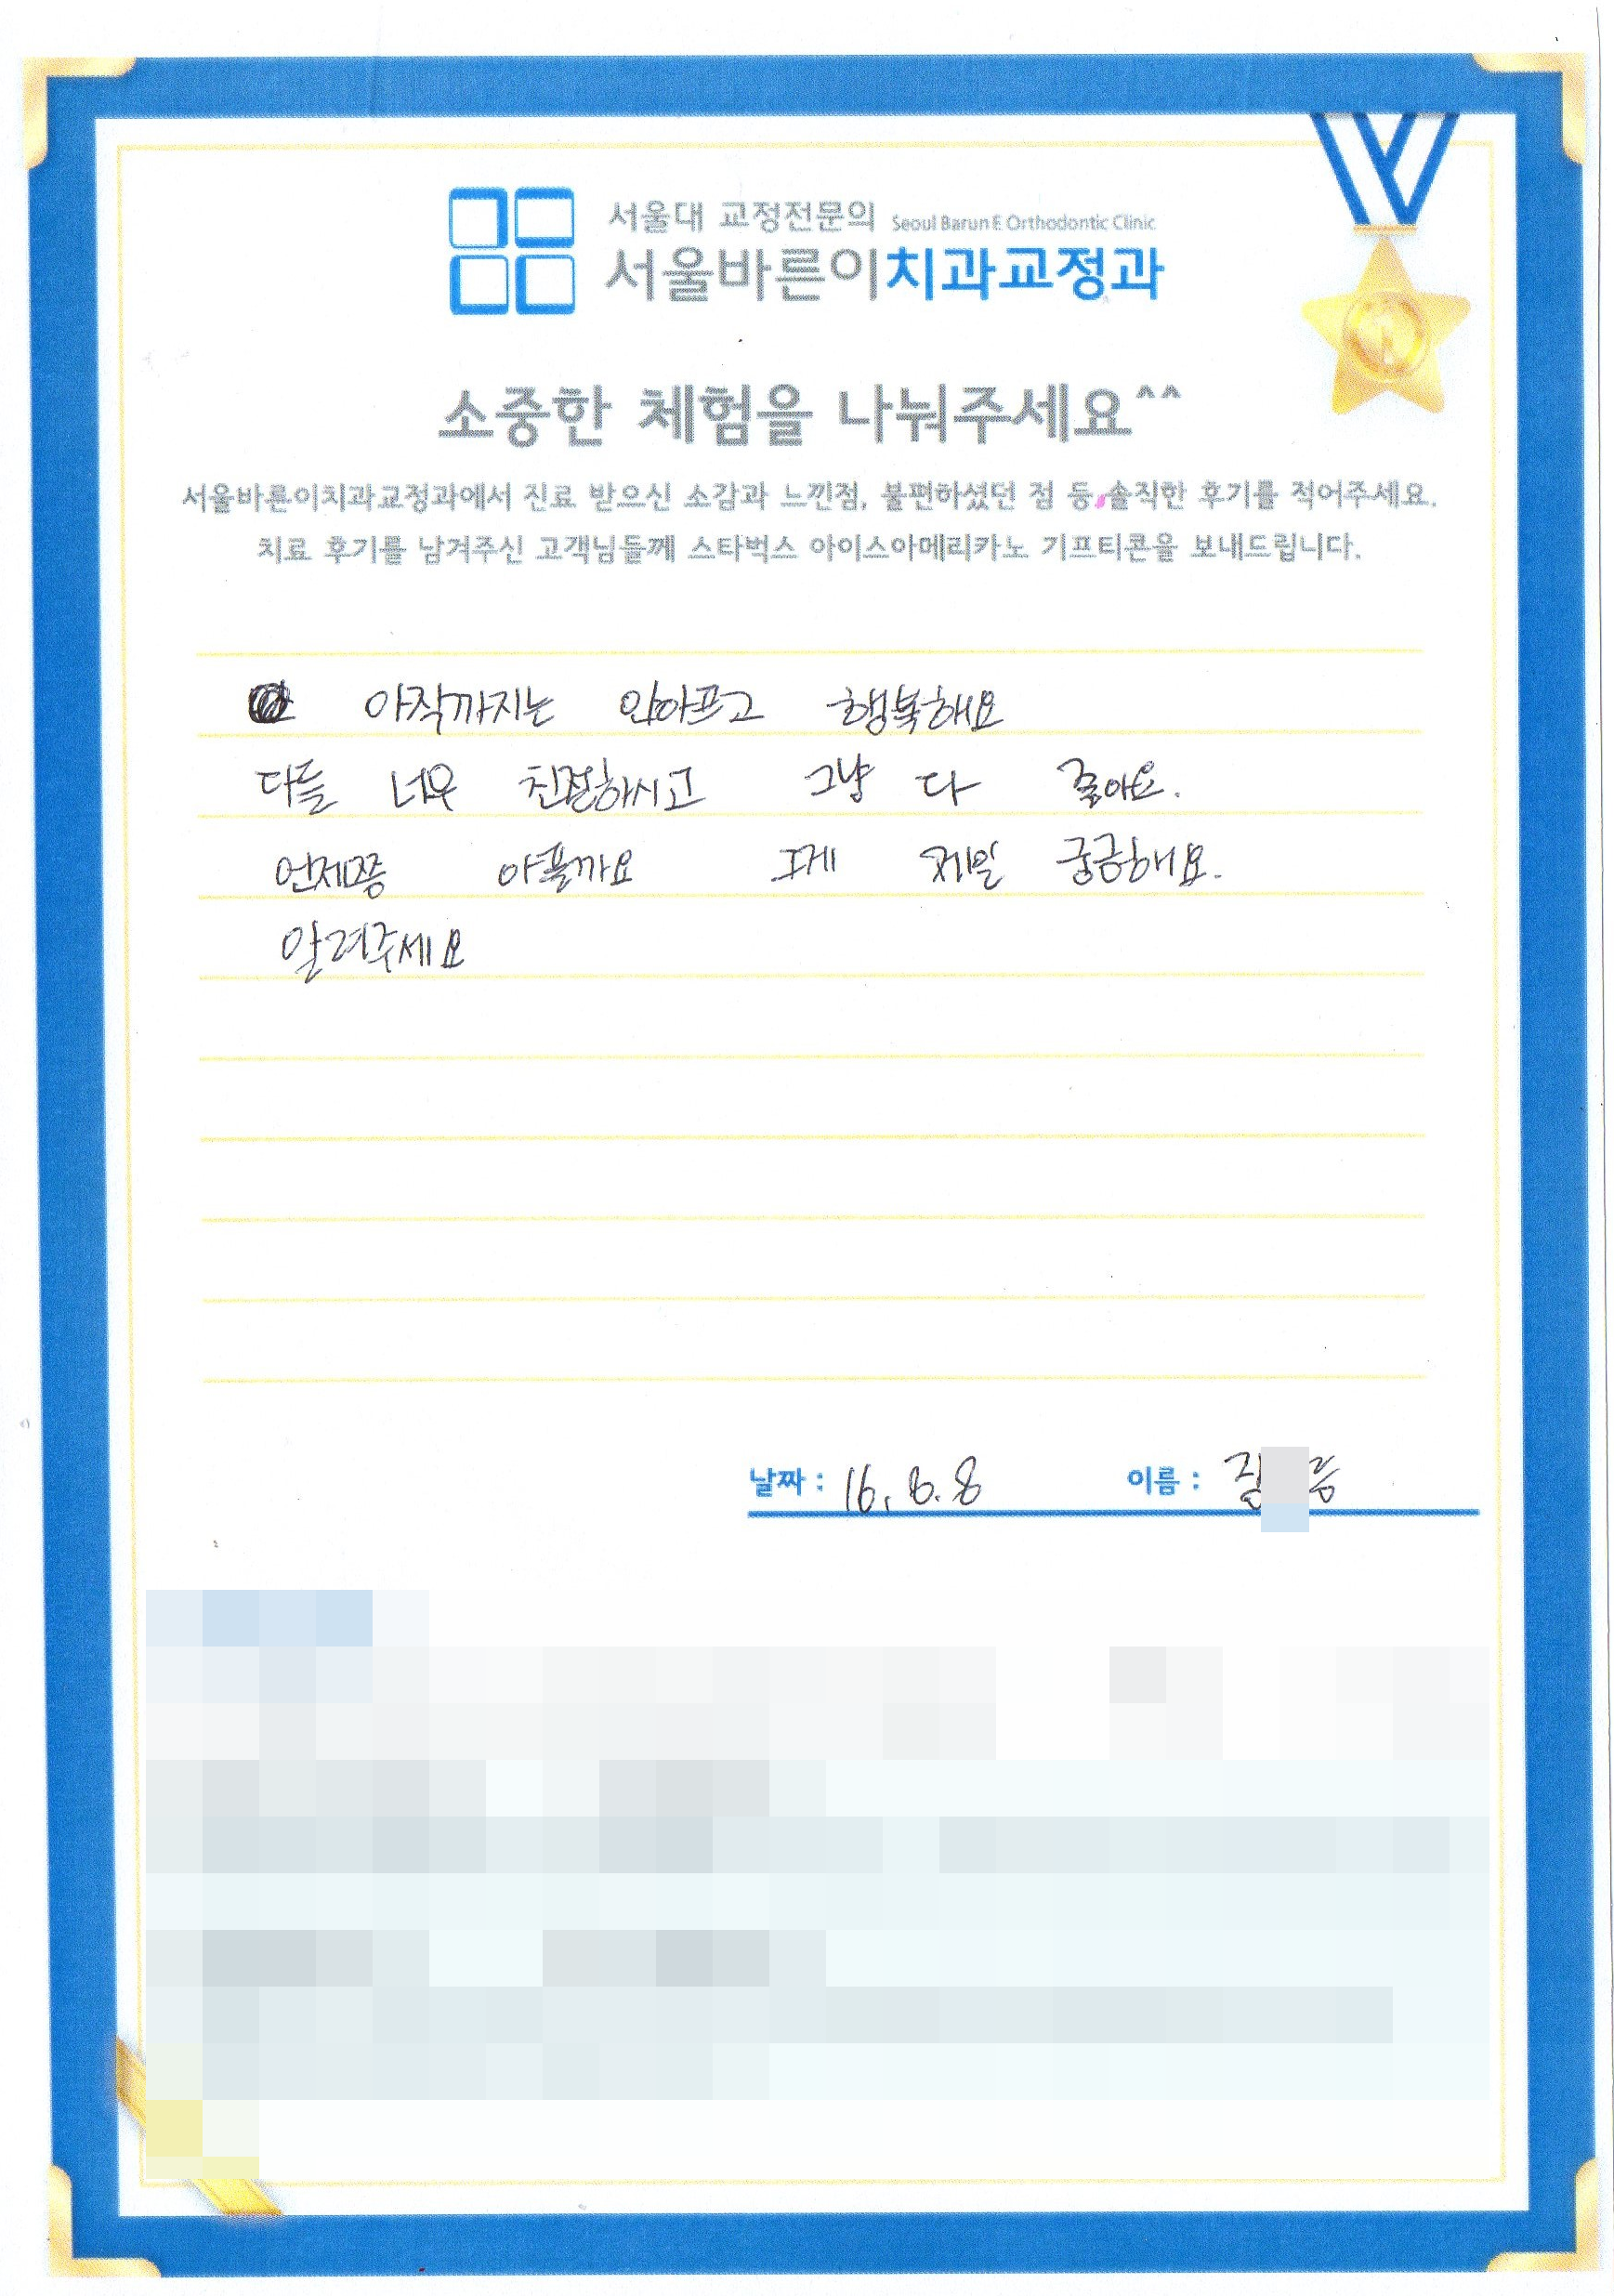 서울대 교정전문의 Seoul Barun E Orthodontic Clinic
서울바른이치과교정과
소중한 체험을 나눠주세요^^
서울바른이치과교정과에서 진료 받으신 소감과 느낀점, 불편하셨던 점 등 솔직한 후기를 적어주세요.
치료 후기를 남겨주신 고객님들께 스타벅스 아이스아메리카노 기프티콘을 보내드립니다.
아직까지는 안아프고 행복해요
다들 너무 친절하시고 그냥 다 좋아요.
언제쯤 아플까요 그게 제일 궁금해요.
알려주세요
날짜 : 16. 6. 8 이름 :